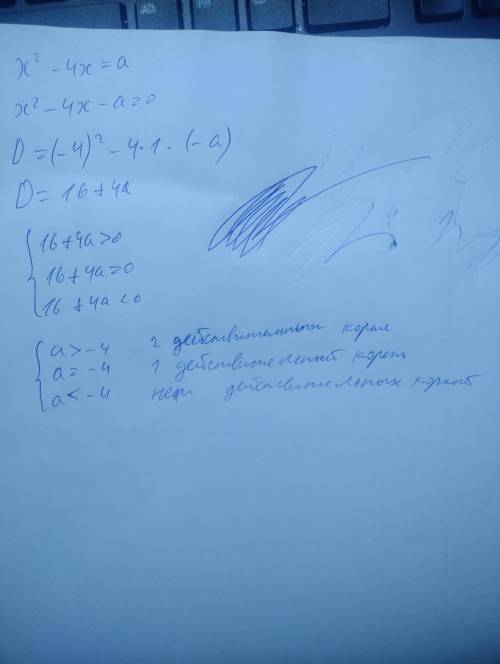 x² - 4x = a
x² - 4x - a = 0
D = (-4)² - 4·1·(-a)
D = 16 + 4a
16 + 4a > 0
16 + 4a = 0
16 + 4a < 0
a > -4 2 действительных корня
a = -4 1 действительный корень
a < -4 нет действительных корней